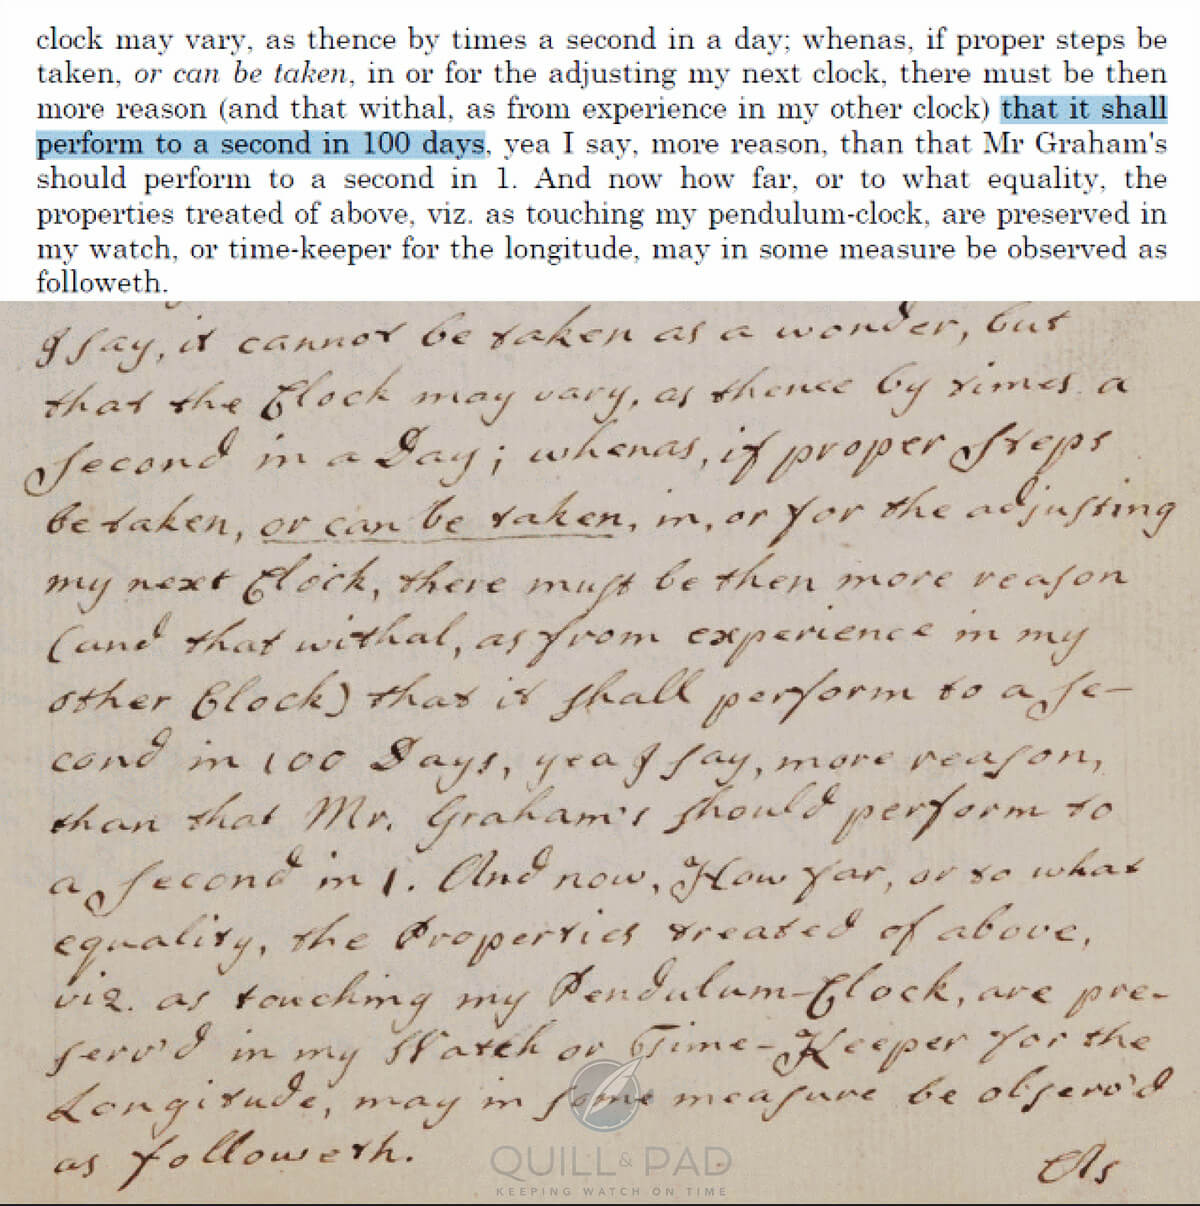 clock may vary, as thence by times a second in a day; whenas, if proper steps be
taken, or can be taken, in or for the adjusting my next clock, there must be then
more reason (and that withal, as from experience in my other clock) that it shall
perform to a second in 100 days, yea I say, more reason, than that Mr Graham's
should perform to a second in 1. And now how far, or to what equality, the
properties treated of above, viz. as touching my pendulum-clock, are preserved in
my watch, or time-keeper for the longitude, may in some measure be observed as
followeth.
I say, it cannot be taken as a wonder, but
that the Clock may vary, as thence by times a
Second in a Day; whenas, if proper Steps
be taken, or can be taken, in, or for the adjusting
my next Clock, there must be then more reason
(and that withal, as from experience in my
other Clock) that it shall perform to a Se-
cond in 100 Days, yea I say, more reason,
than that Mr. Graham's should perform to
a Second in 1. And now, How far, or to what
equality, the Properties treated of above,
viz. as touching my Pendulum-Clock, are pre-
serv'd in my Watch or Time-Keeper for the
Longitude, may in some measure be observ'd
as followeth.
As
QUILL & PAD
KEEPING WATCH ON TIME